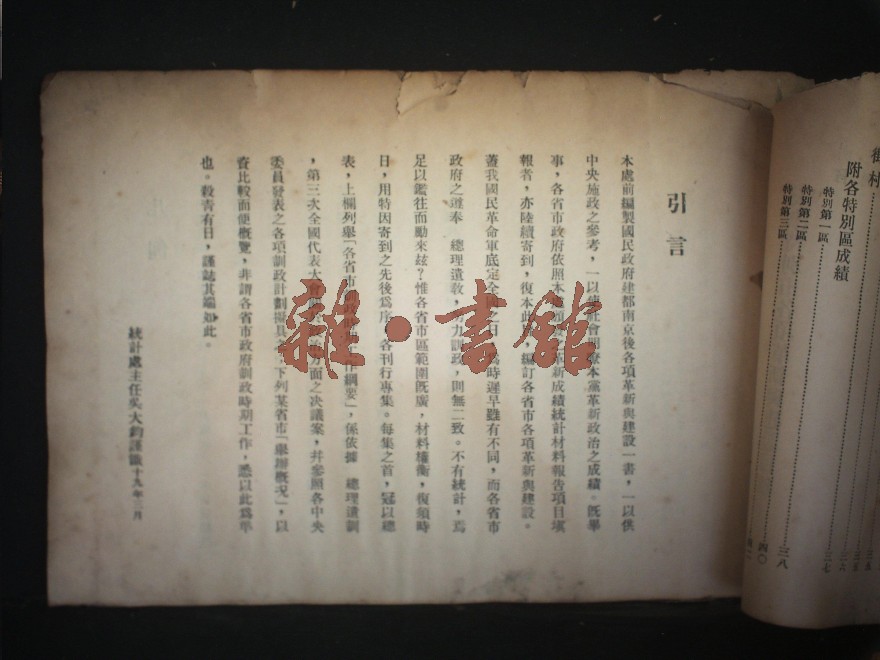 引言
本處前編製國民政府建都南京後各項革新與建設一書,一以供
中央施政之參考,一以使社會明瞭本黨革新政治之成績。既畢
事,各省市政府依照本處制新成績統計材料報告項目填
報者,亦陸續寄到,復本此編訂各省市各項革新與建設。
蓋我國民革命軍底定全國之日時遲早雖有不同,而各省市
政府之遵奉 總理遺敎,力訓政,則無二致。不有統計,焉
足以鑑往而勵來玆?惟各省市區範圍既廣,材料權衡,復須時
日,用特因寄到之先後爲序,各刊行專集。每集之首,冠以總
表,上欄列舉「各省市綱要」,係依據 總理遺訓
,第三次全國代表大會方面之決議案,幷參照各中央
委員發表之各項訓政計劃擬具下列某省市「舉辦概況」,以
資比較而便概覽,非謂各省市政府訓政時期工作,悉以此爲準
也。殺青有日,謹誌其端如此。
統計處主任吳大鈞謹識 十九年 月
街村
附各特別區成績
特別第一區
特別第二區
特別第三區
三五
三六
三七
三八
四〇
雜·書館